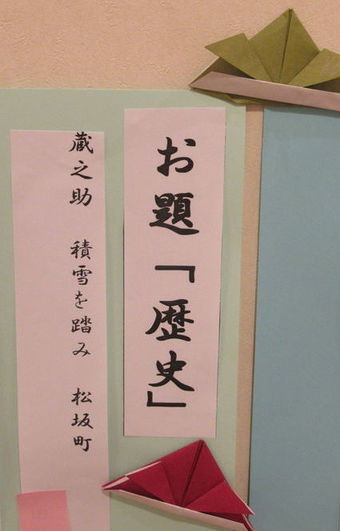 お題「歴史」
蔵之助 積雪を踏み 松坂町